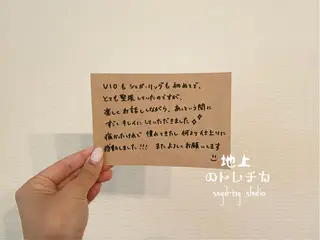 VIOもシュガーリングも初めてで、
とても緊張していたのですが、
楽しくお話ししながら、あっという間に
すごくキレイにしていただきました✨
痛かったけれど 慣れてきたし 何より仕上りに
感動しました!!! またよろしくお願いします
地上
のトレチカ
sugaring studio